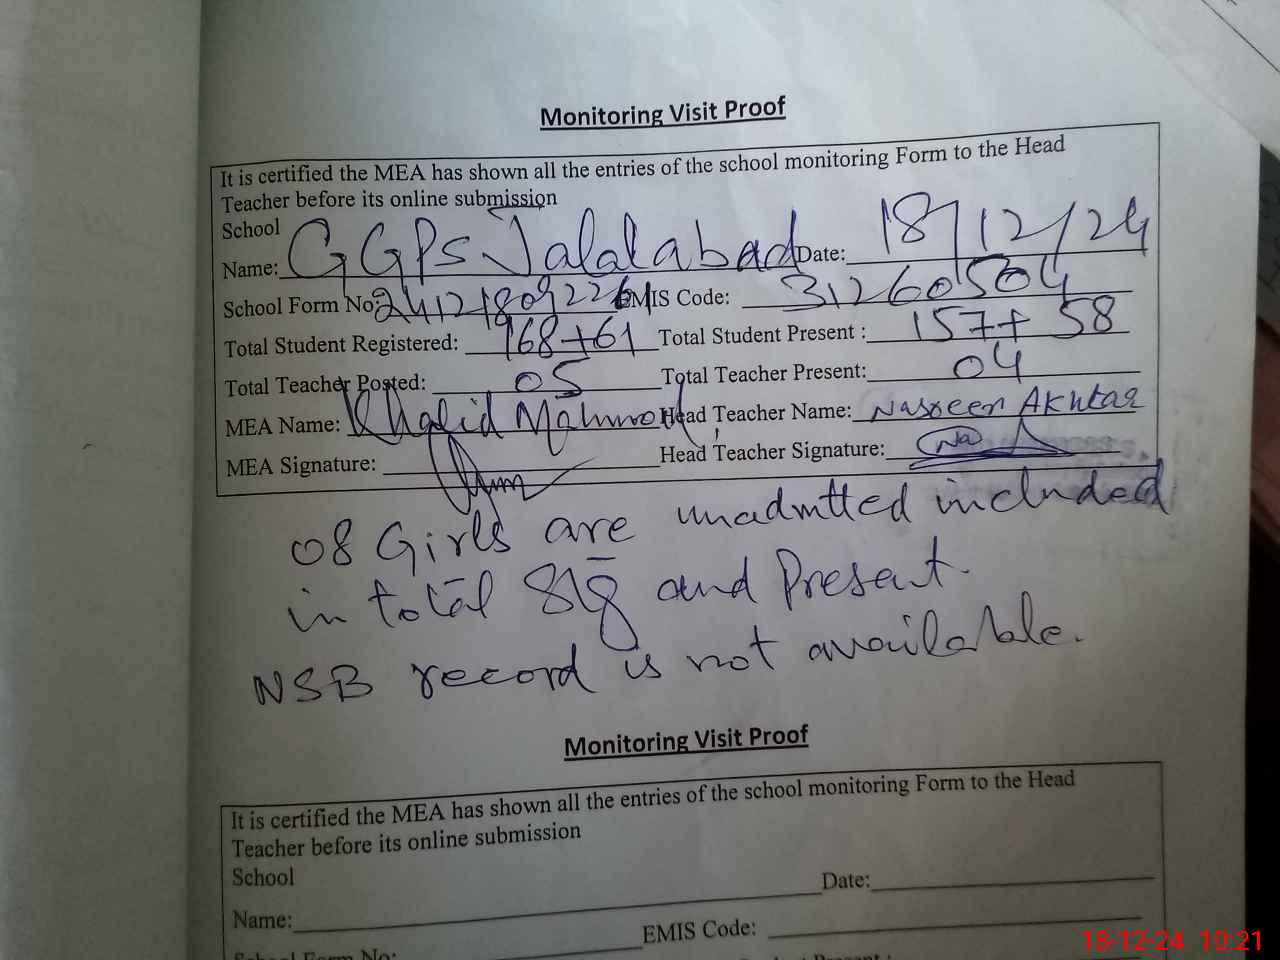 Monitoring Visit Proof
It is certified the MEA has shown all the entries of the school monitoring Form to the Head
Teacher before its online submission
School
Name: GGPS Jalalabad Date: 18/12/24
School Form No: EMIS Code: 31260504
Total Student Registered: 168+61 Total Student Present : 157+ 58
Total Teacher Posted: 05 Total Teacher Present: 04
MEA Name: Khalid Mahmood Head Teacher Name: Nasreen Akhtar
MEA Signature: Head Teacher Signature:
08 Girls are unadmitted included
in total and Present.
NSB record is not available.
Monitoring Visit Proof
It is certified the MEA has shown all the entries of the school monitoring Form to the Head
Teacher before its online submission
School
Name: Date:
School Form No: EMIS Code:
18-12-24 10:21